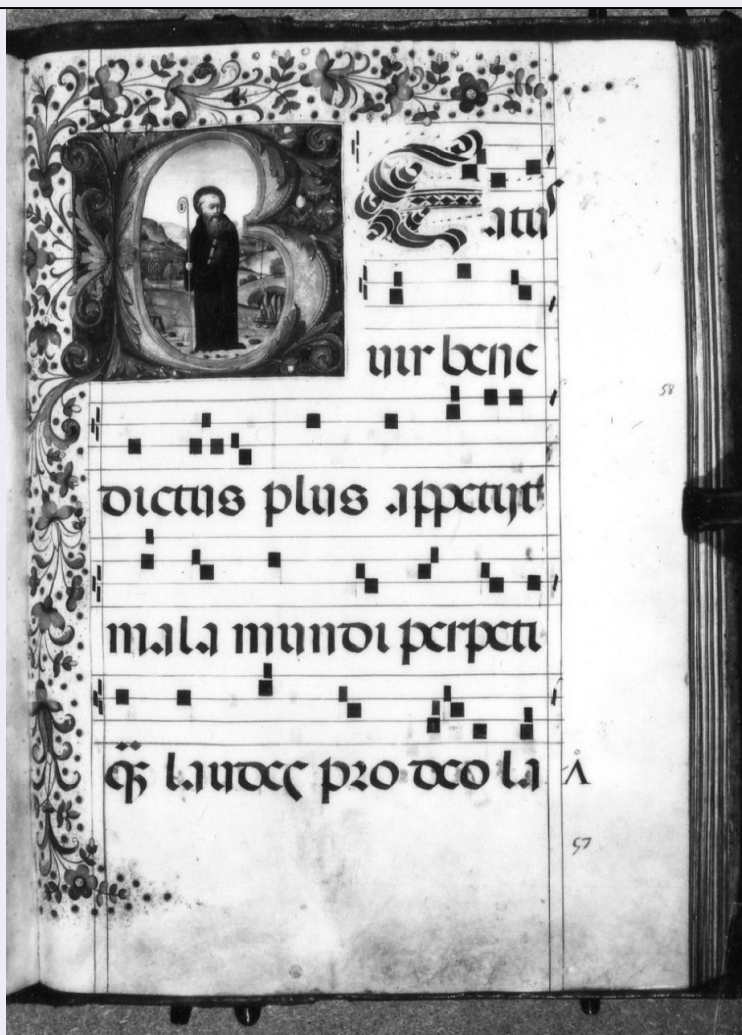 BEatus
uir bene
dictus plus appetiit
mala mundi perpeti
58
q̃ȝ laudes pro deo la
A
57